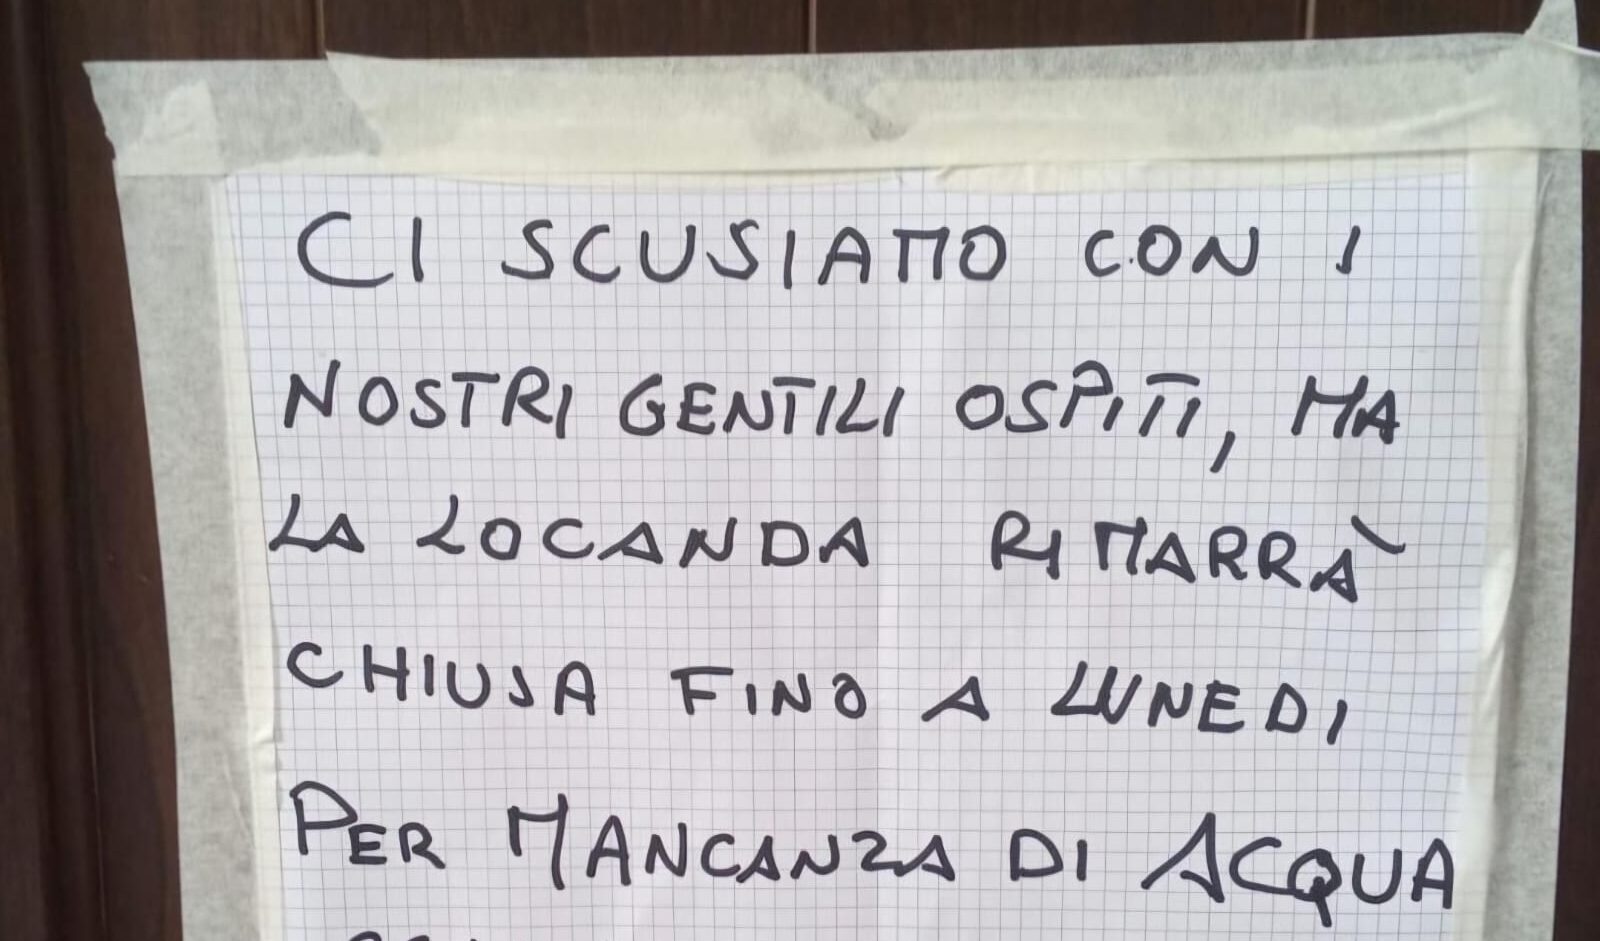 CI SCUSIAMO CON I
NOSTRI GENTILI OSPITI, MA
LA LOCANDA RIMARRÀ
CHIUSA FINO A LUNEDI
PER MANCANZA DI ACQUA